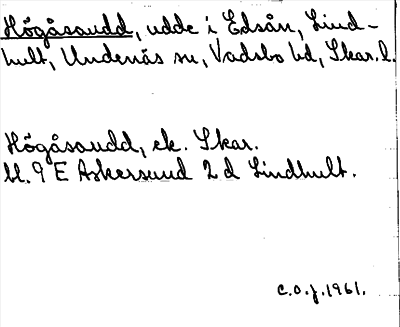 Högåsaudd, udde i Edsån, Lind-
hult, Undenäs sn, Vadsbo hd, Skar. l.
Högåsaudd, ek. Skar.
bl. 9 E Askersund 2 d Lindhult.
c.o.j. 1961.